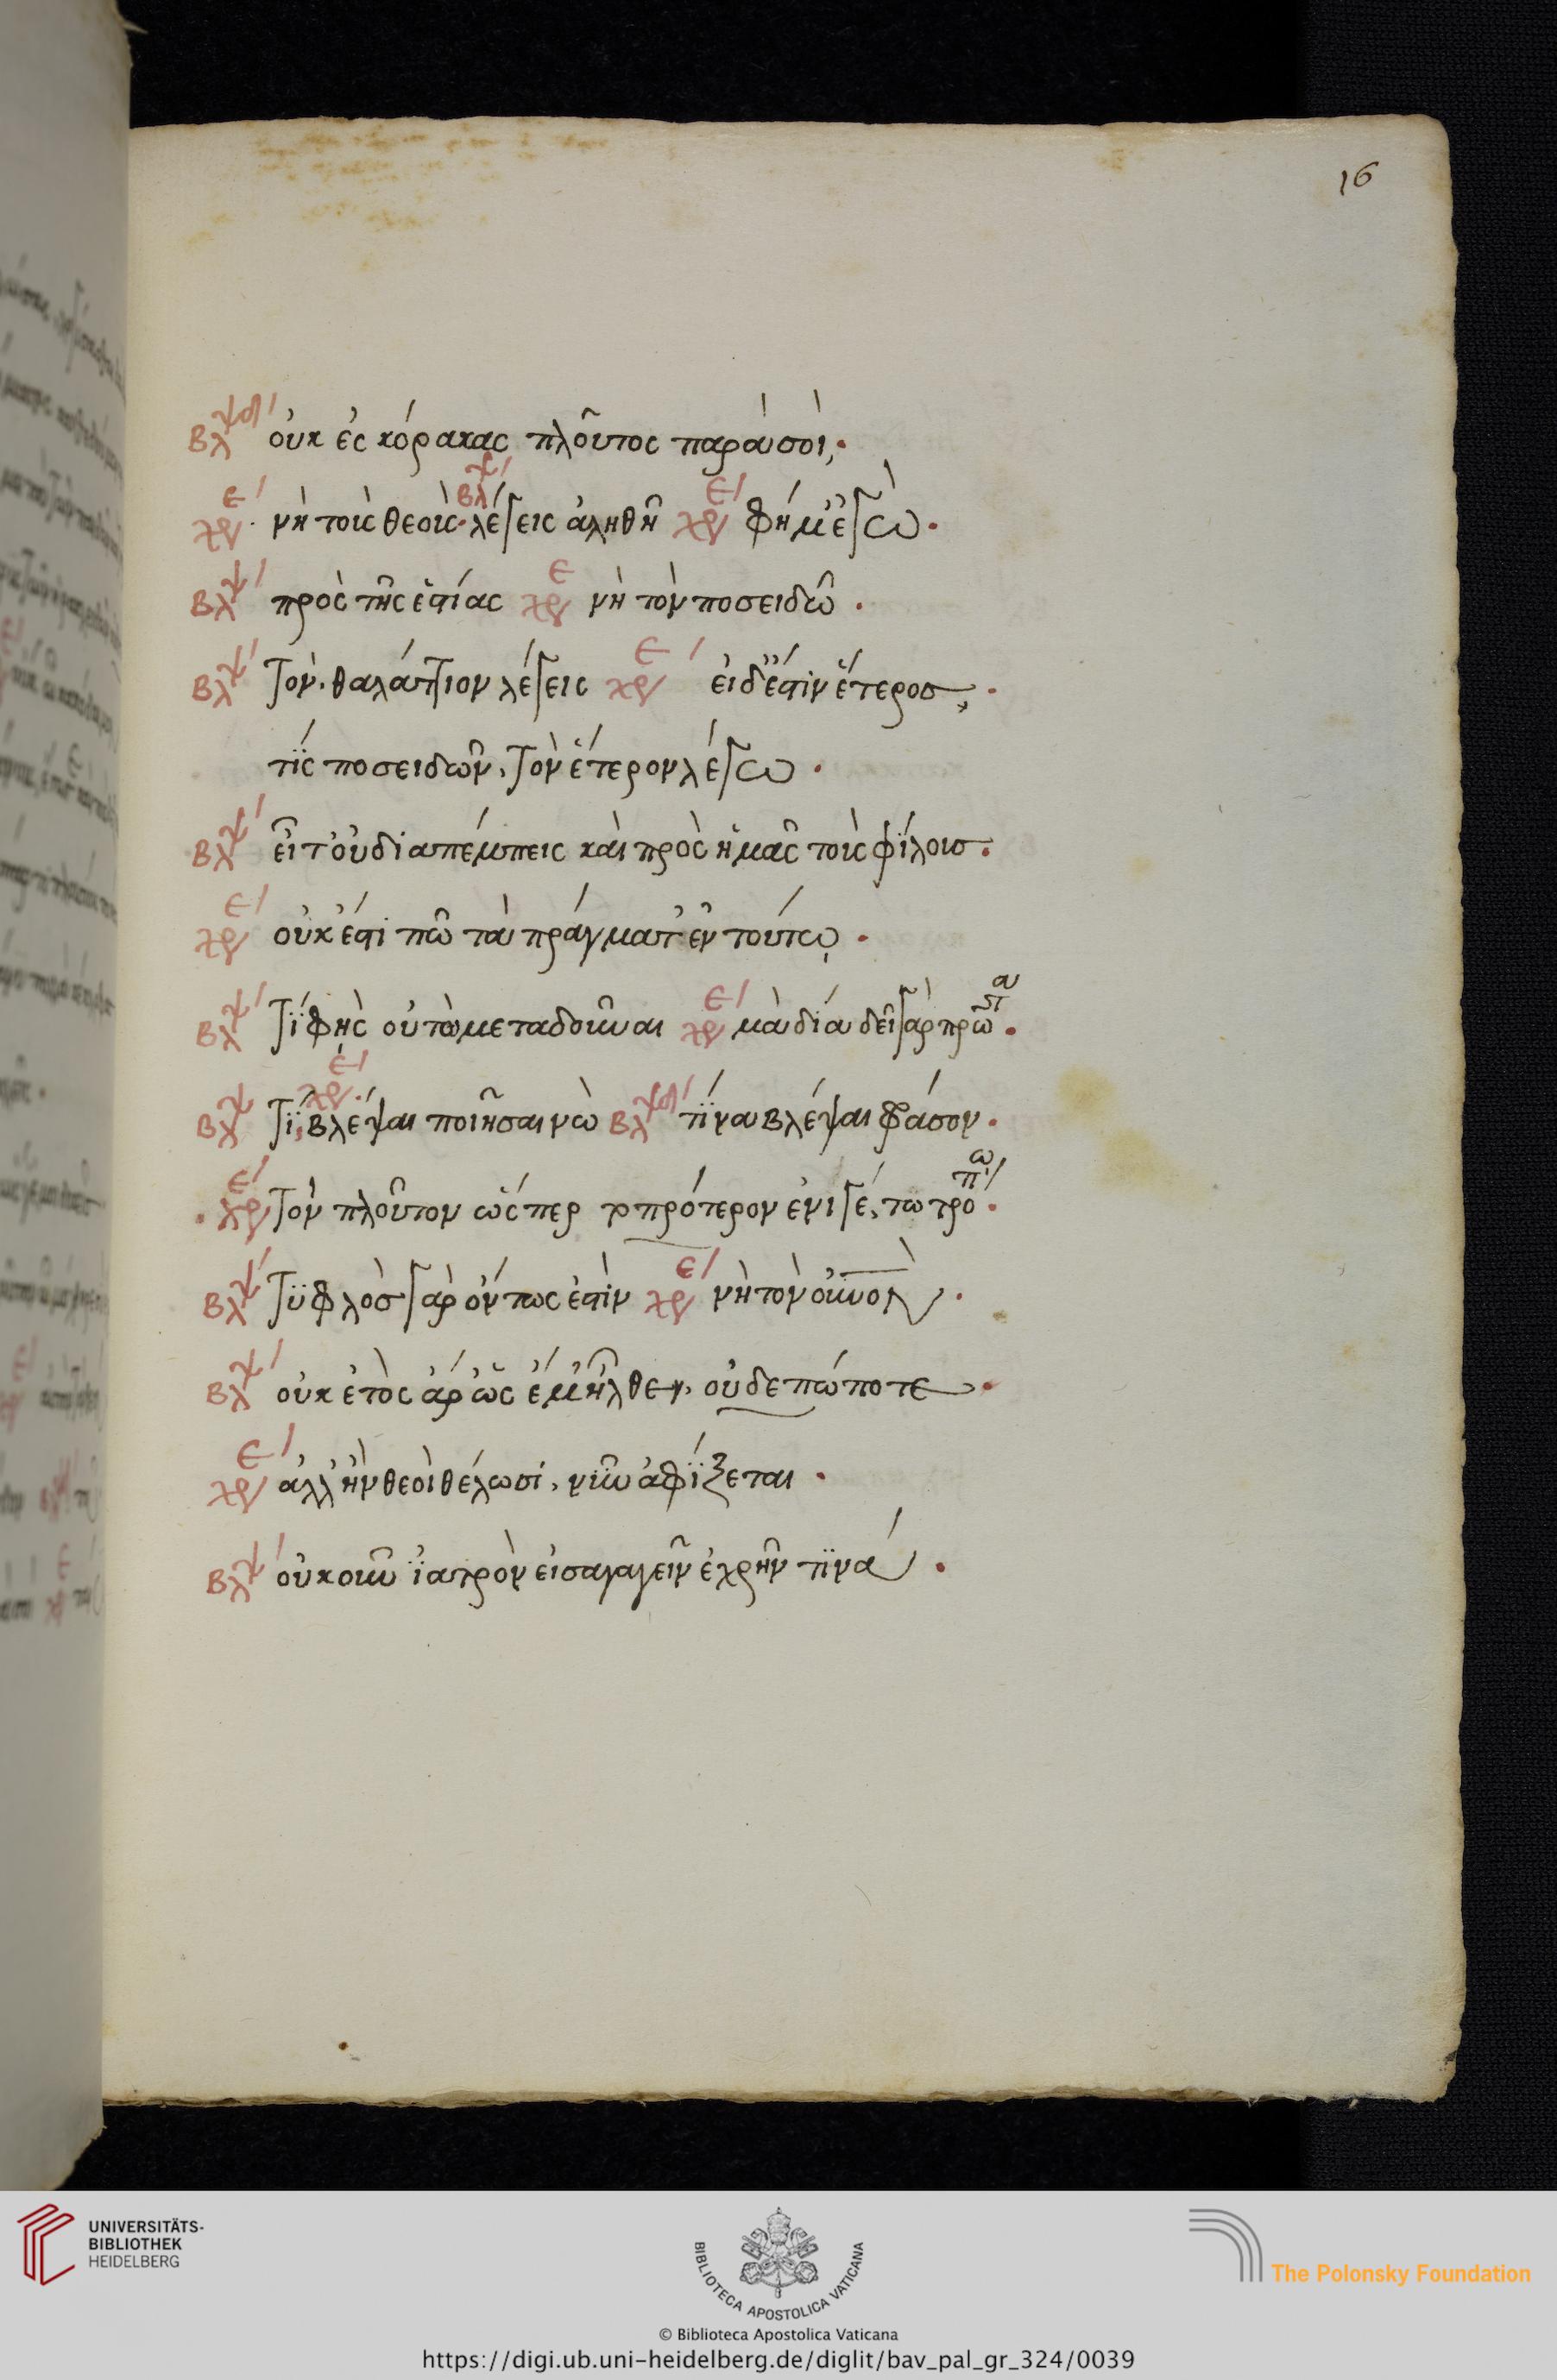 16
Βλεψι οὐκ ἐς κόρακας πλοῦτος παρὰ σοὶ;
χρε νὴ τοὺς θεοὺς. βλεψ λέγεις ἀληθῆ χρε φήμ' ἐγὼ.
Βλεψ πρὸς τῆς ἑστίας χρε νὴ τὸν ποσειδῶ.
Βλεψ τὸν θαλάττιον λέγεις χρε εἰ δ' ἔστιν ἕτεροσ,
τΐς ποσειδῶν, τὸν ἕτερον λέγω.
Βλεψ εἶτ' οὐ διαπέμπεις καὶ πρὸς ἡμᾶς τοὺς φΐλουσ.
χρε οὐκ ἔστι πῶ τὰ πράγματ' ἐν τούτῳ.
Βλεψ τΐ φῂς οὐ τῶ μεταδοῦναι χρε μὰ δία δεῖ γὰρ πρῶτα.
Βλεψ τΐ, χρε. βλέψαι ποιῆσαι νὼ βλεψι τΐνα βλέψαι φράσον.
χρε τὸν πλοῦτον ὥσπερ τοπρότερον ἑνΐ γέ, τω τρόπω.
Βλεψ τϋφλὸσ γὰρ ὄντως ἐστὶν χρε νὴ τὸν οὐνον.
Βλεψ οὐκ ἐτὸς ἄρ' ὡς ἔμ' ἦλθεν, οὐδεπώποτε.
χρε ἀλλ' ἢν θεοὶ θέλωσί, νῦν ἀφΐξεται.
Βλεψ οὐκοῦν ϊατρὸν εἰσαγαγεῖν ἐχρῆν τϊνά.
UNIVERSITÄTS-
BIBLIOTHEK
HEIDELBERG
BIBLIOTECA APOSTOLICA VATICANA
The Polonsky Foundation
© Biblioteca Apostolica Vaticana
https://digi.ub.uni-heidelberg.de/diglit/bav_pal_gr_324/0039